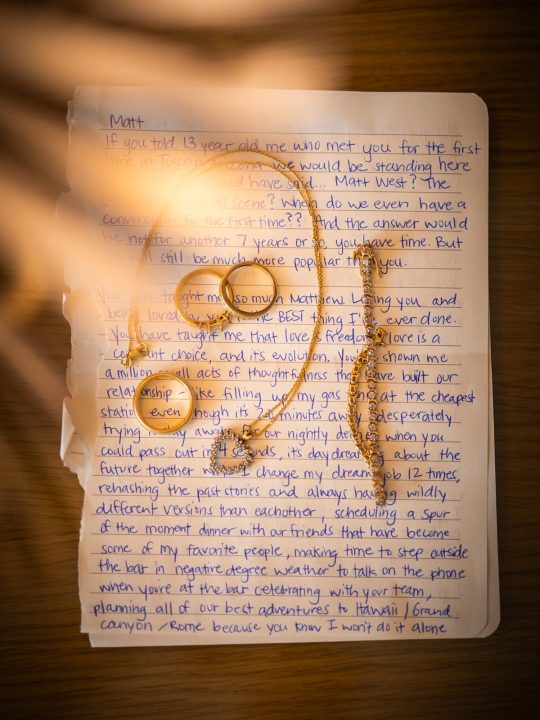 Matt
If you told 13 year old me who met you for the first
time in Tuscan Arizona we would be standing here
ld have said... Matt West? The
al scene? When do we even have a
conversation for the first time?? And the answer would
be not for another 7 years or so, you have time. But
will still be much more popular than you.
You have taught me so much Matthew. Loving you and
being loved by you is the BEST thing I've ever done.
You have taught me that love is freedom, love is a
constant choice, and its evolution. You've shown me
a million small acts of thoughtfulness that have built our
relationship - like filling up my gas at the cheapest
station even though its 20 minutes away, desperately
trying to stay awake for our nightly when you
could pass out in 4 seconds, its daydreaming about the
future together while I change my dream job 12 times,
rehashing the past stories and always having wildly
different versions than eachother, scheduling a spur
of the moment dinner with our friends that have become
some of my favorite people, making time to step outside
the bar in negative degree weather to talk on the phone
when you're at the bar celebrating with your team,
planning all of our best adventures to Hawaii / Grand
canyon / Rome because you know I won't do it alone